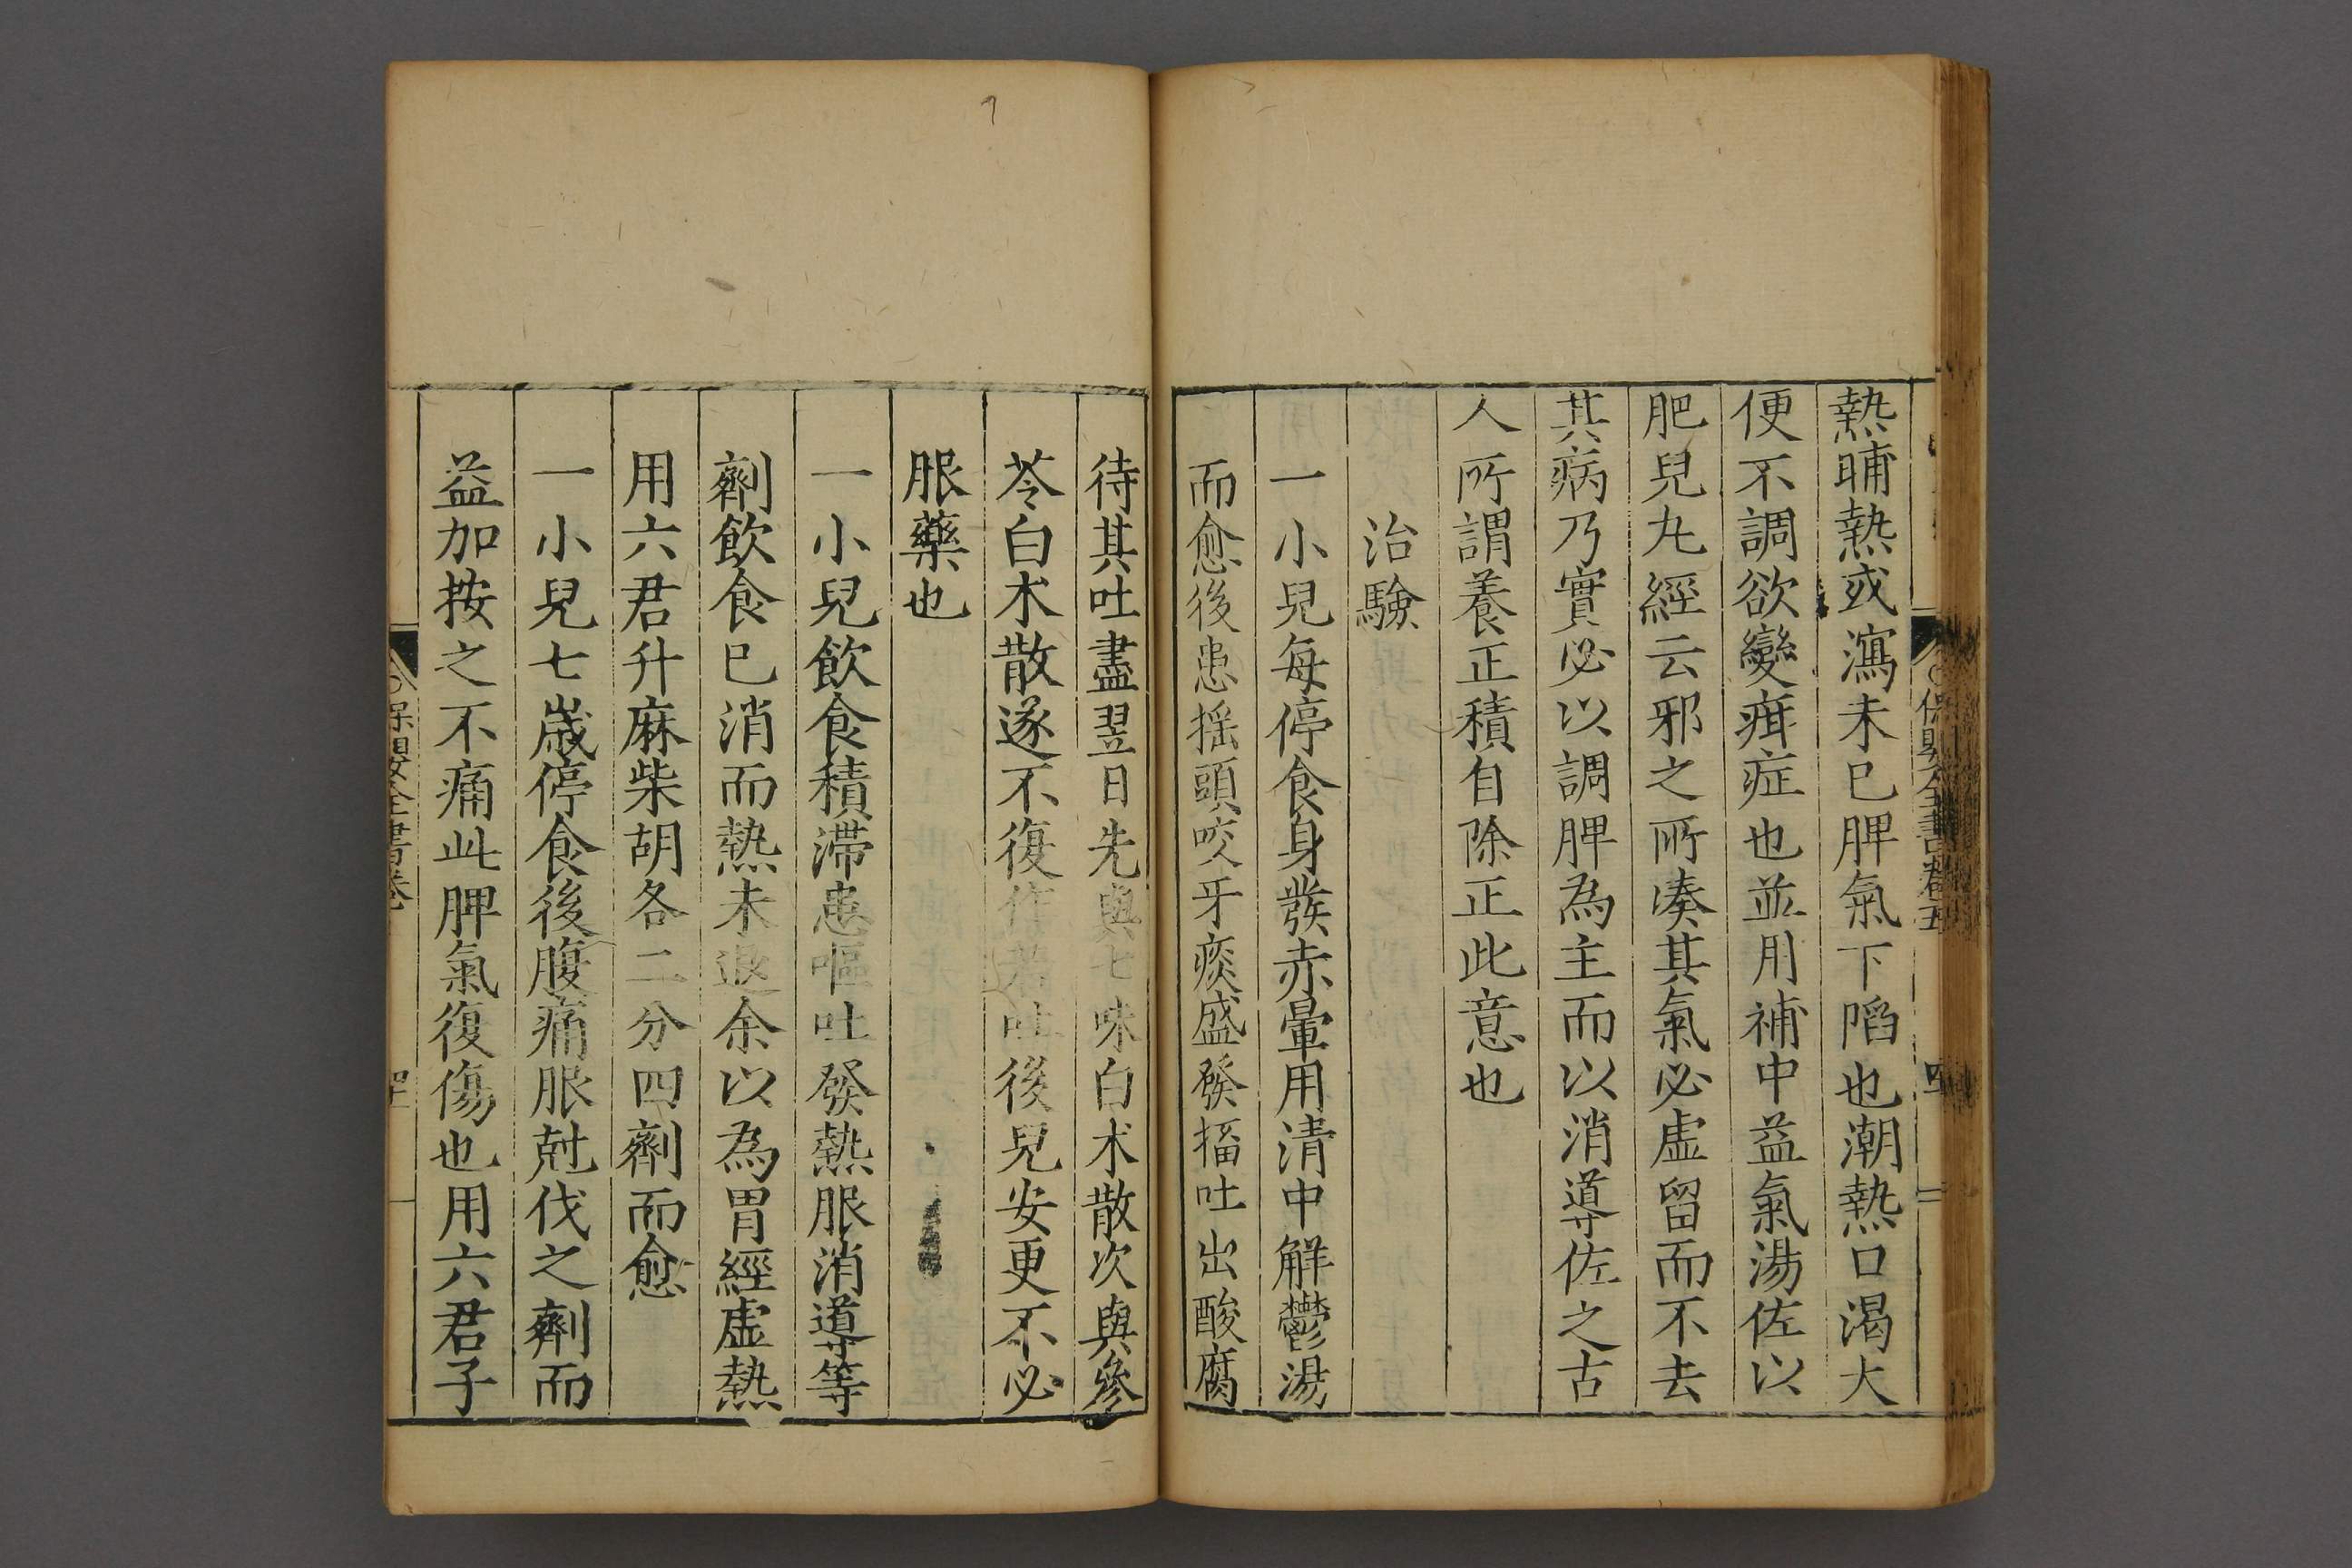 熱晡熱或瀉未已脾氣下陷也潮熱口渴大
便不調欲變疳症也並用補中益氣湯佐以
肥兒丸經云邪之所凑其氣必虛留而不去
其病乃實必以調脾為主而以消導佐之古
人所謂養正積自除正此意也
治驗
一小兒每停食身發赤暈用清中解鬱湯
而愈後患搖頭咬牙痰盛發搐吐出酸腐
待其吐盡翌日先與七味白朮散次與參
苓白朮散遂不復作若吐後兒安更不必
服藥也
一小兒飲食積滯患嘔吐發熱服消導等
劑飲食已消而熱未退余以為胃經虛熱
用六君升麻柴胡各二分四劑而愈
一小兒七歲停食後腹痛服尅伐之劑而
益加按之不痛此脾氣復傷也用六君子
保嬰全書卷